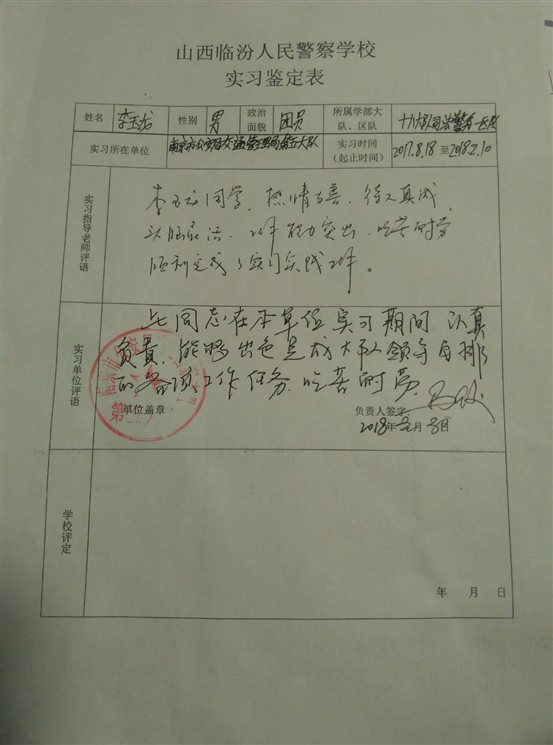 山西临汾人民警察学校
实习鉴定表
姓名 李玉龙 性别 男 政治面貌 团员 所属学部大队、区队 十八大队司法警务一区队
实习所在单位 南京市公安局交通管理局第五大队 实习时间(起止时间) 2017.8.18 至 2018.2.10
实习指导老师评语
李玉龙同学,热情友善,待人真诚,
头脑灵活,工作能力突出,吃苦耐劳
顺利完成了实习实践工作。
实习单位评语
此同志在本单位实习期间,认真
负责,能够出色完成大队领导安排
的各项工作任务,吃苦耐劳。
单位盖章 负责人签字
2018年2月8日
学校评定
年 月 日